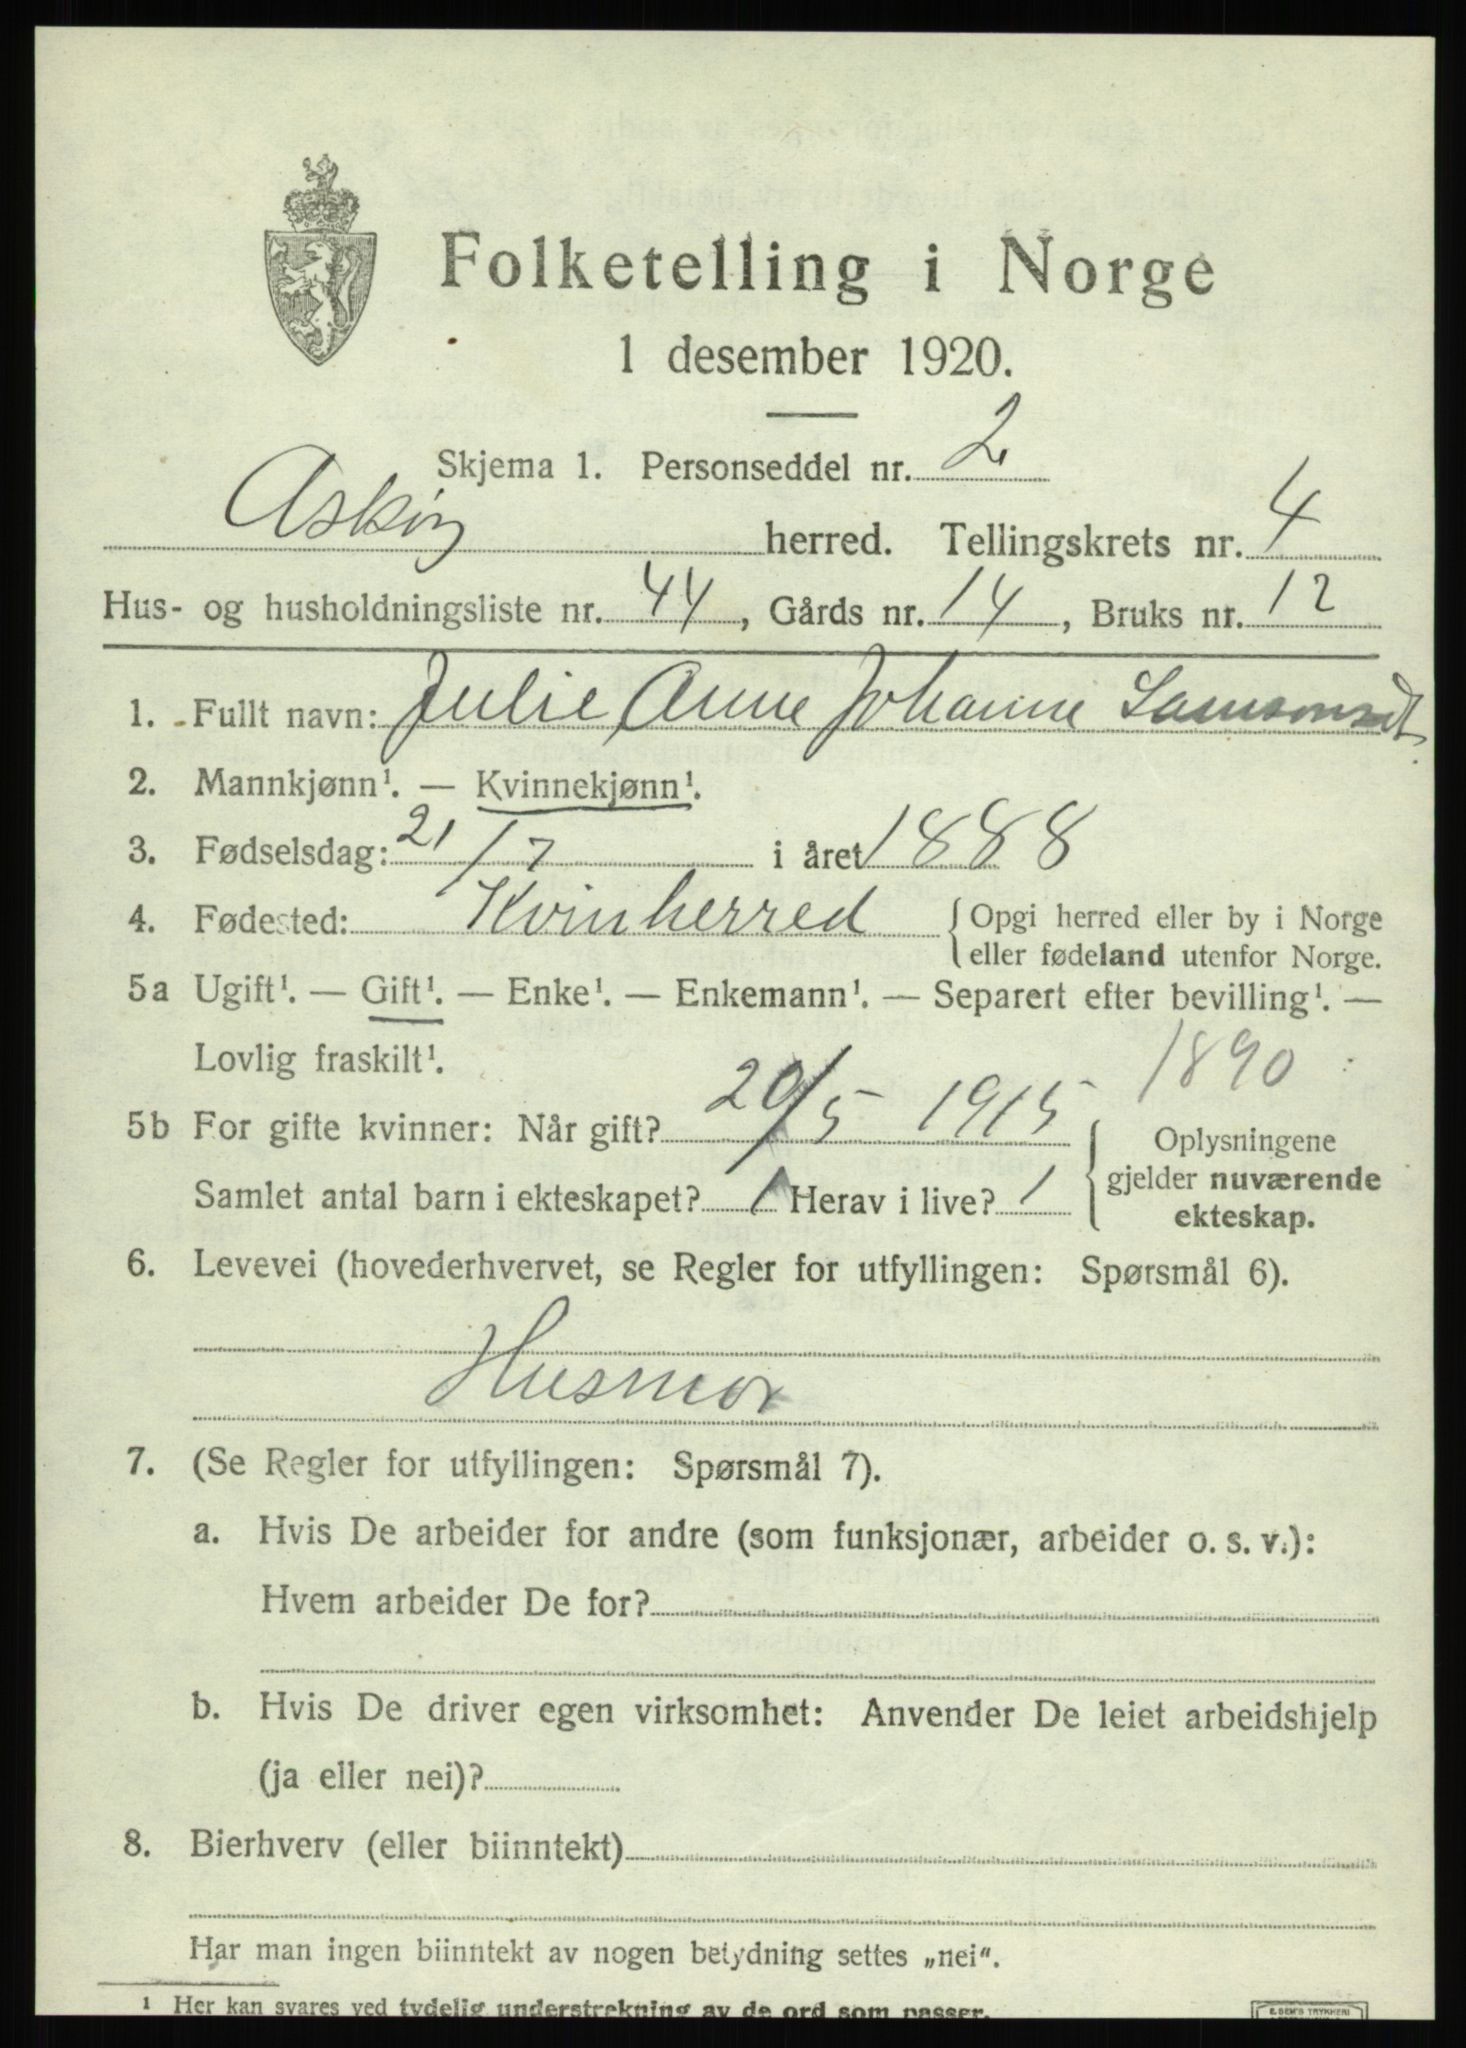 Folketelling i Norge
1 desember 1920.
Skjema 1. Personseddel nr. 2
Askøy herred. Tellingskrets nr. 4
Hus- og husholdningsliste nr. 44, Gårds nr. 14, Bruks nr. 12
1. Fullt navn: Julie Anne Johanne
2. Mannkjønn¹. — Kvinnekjønn¹.
3. Fødselsdag: 21/7 i året 1888
4. Fødested: Kvinherred { Opgi herred eller by i Norge
eller fødeland utenfor Norge.
5a Ugift¹. — Gift¹. — Enke¹. — Enkemann¹. — Separert efter bevilling¹. —
Lovlig fraskilt¹.
1890
5b For gifte kvinner: Når gift? 20/5 1915
Samlet antal barn i ekteskapet? 1 Herav i live? 1
{ Oplysningene
gjelder nuværende
ekteskap.
6. Levevei (hovederhvervet, se Regler for utfyllingen: Spørsmål 6).
Husmor
7. (Se Regler for utfyllingen: Spørsmål 7).
a. Hvis De arbeider for andre (som funksjonær, arbeider o. s. v.):
Hvem arbeider De for?
b. Hvis De driver egen virksomhet: Anvender De leiet arbeidshjelp
(ja eller nei)?
8. Bierhverv (eller biinntekt)
Har man ingen biinntekt av nogen betydning settes „nei“.
¹ Her kan svares ved tydelig understrekning av de ord som passer.